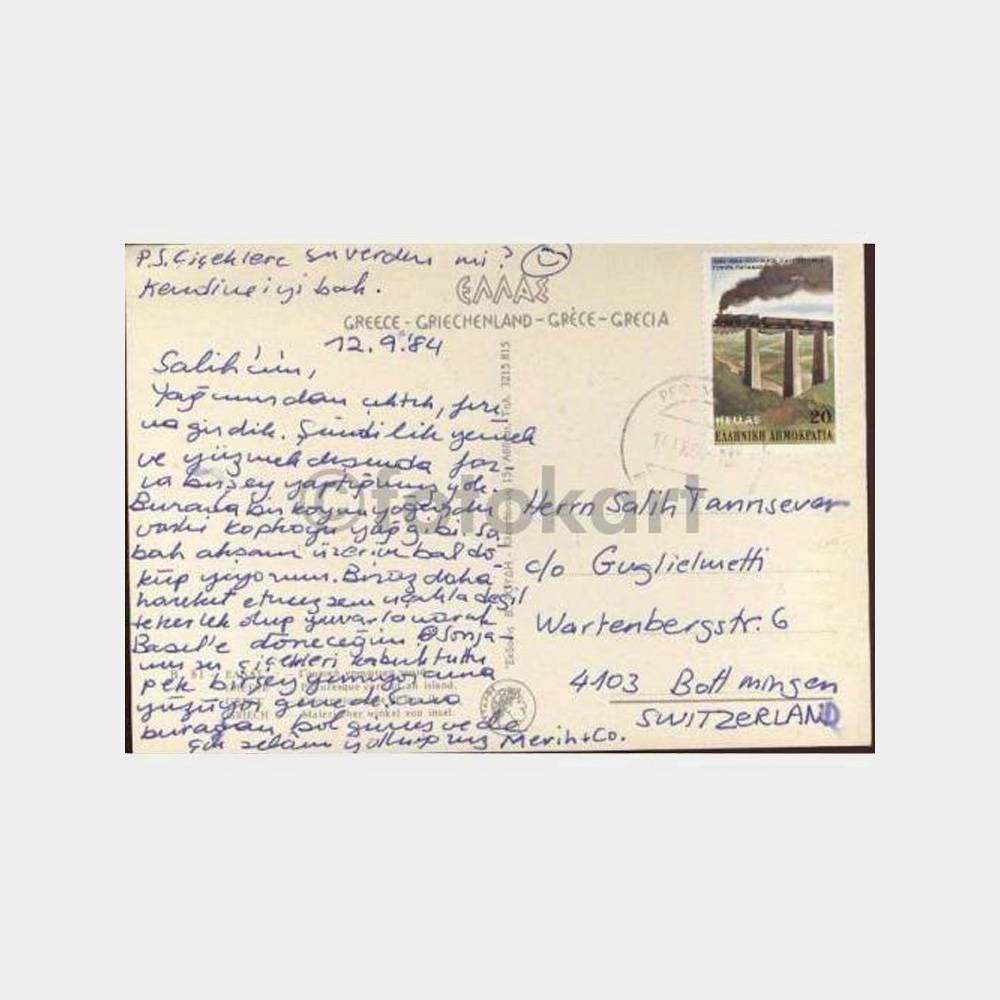 P.S. Çiçeklere su verdin mi?
Kendine iyi bak.
ΕΛΛΑΣ
GREECE - GRIECHENLAND - GRÈCE - GRECIA
12.9.'84
Salih'cim,
Yağmurdan çıktık, fırı-
na girdik. Şimdilik yemek
ve yüzmek dışında faz-
la birşey yaptığımız yok.
Burada bir koyun yoğurdu
var ki kopkoyu yağ gibi. Sa-
bah akşam üzerine bal dö-
küp yiyorum. Biraz daha
hareket etmezsem uçakla değil
tekerlek olup yuvarlanarak
Basel'e döneceğim. Sonja-
nın çiçekleri kabuk tuttu
pek birşey yemiyor ama
yüzüyor gene de. Sana
buradan bol güneş ve de
çok selam yolluyoruz Merih+Co.
HELLAS 20
ΕΛΛΗΝΙΚΗ ΔΗΜΟΚΡΑΤΙΑ
Herrn Salih Tanrısever
c/o Guglielmetti
Wartenbergstr. 6
4103 Bottmingen
SWITZERLAND
Malerischer winkel von insel.
©fotokart